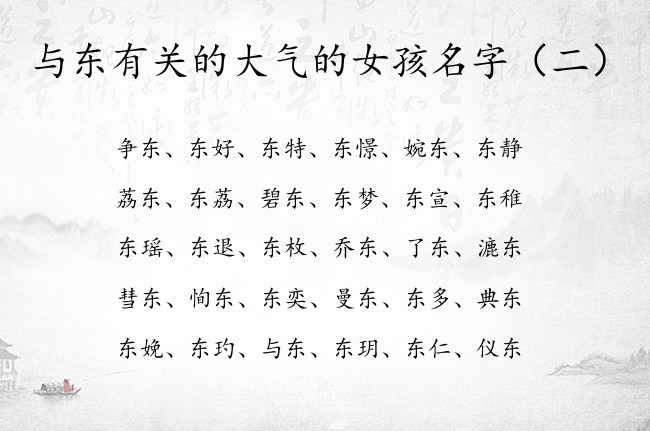 与东有关的大气的女孩名字（二）
争东、东好、东特、东憬、婉东、东静
荔东、东荔、碧东、东梦、东宣、东稚
东瑶、东退、东枚、乔东、了东、漉东
彗东、恂东、东奕、曼东、东多、典东
东娩、东玓、与东、东玥、东仁、仪东